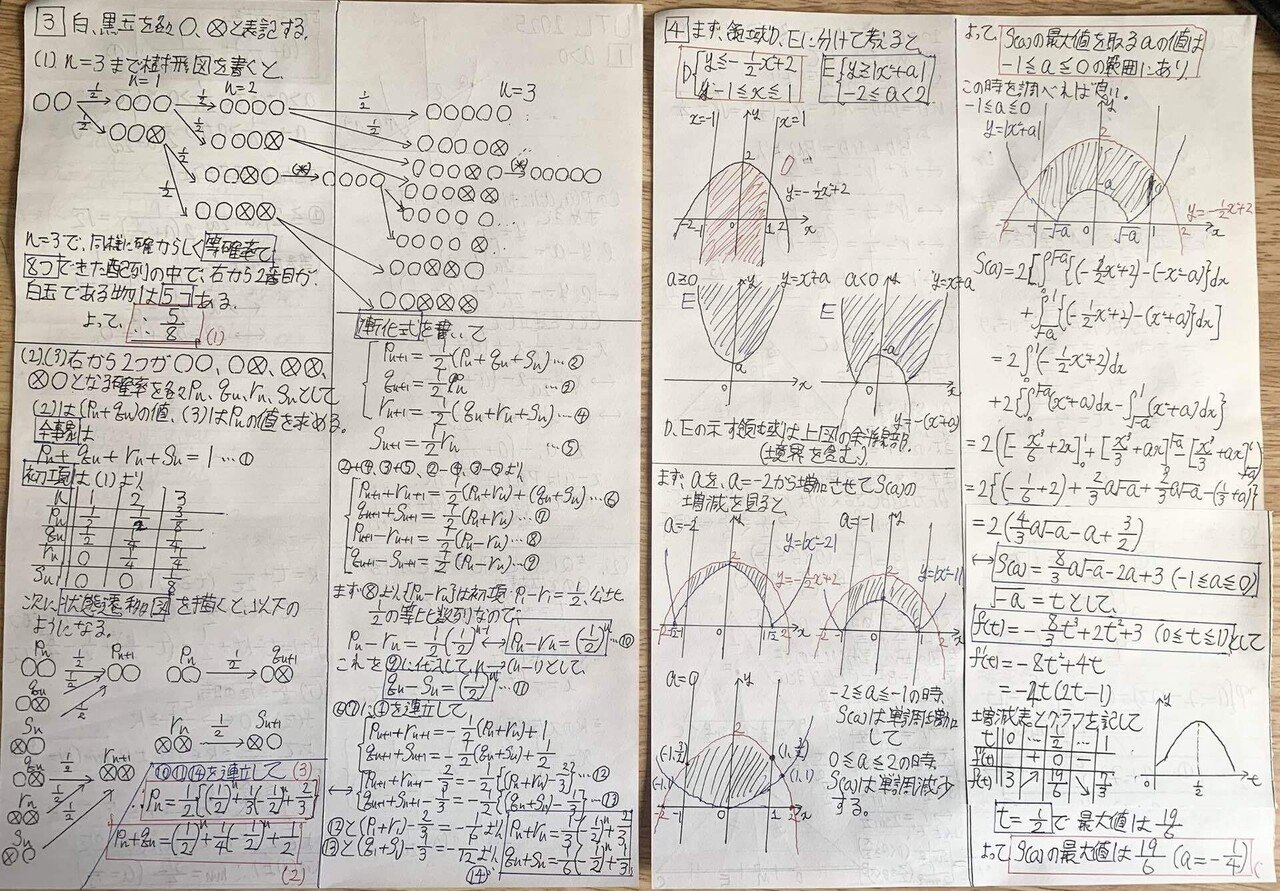 3 白、黒玉を各々〇、⊗と表記する。
(1) n=3まで樹形図を書くと、
n=1
n=2
n=3
〇〇 1/2 〇〇〇 1/2 〇〇〇〇 1/2 〇〇〇〇〇
1/2 〇〇⊗ 1/2 〇〇〇⊗ 〇〇〇〇⊗
1/2 〇〇⊗〇 (*) 〇〇〇〇
1/2 〇〇⊗⊗
(*) 〇〇〇〇〇
n=3で、同様に確からしく等確率で
8つできた配列の中で、右から2番目が
白玉である物は5コある。
よって、∴ 5/8 (1)
(2)(3)右から2つが〇〇、〇⊗、⊗⊗、
⊗〇となる確率を各々Pn、qn、rn、Snとして
(2)は(Pn+qn)の値、(3)はPnの値を求める。
全事象は
Pn+qn+rn+Sn=1…①
初項は(1)より
n 1 2 3
Pn 1/2
qn 1/2 1/4 1/4
rn 0 1/4 1/4
Sn 0 0 1/8
次に状態遷移図を描くと、以下の
ようになる。
Pn 1/2 Pn+1 Pn 1/2 qn+1
qn
Sn 1/2
rn 1/2 Sn+1
qn 1/2 rn+1
rn
Sn
⑩⑪⑭を連立して (3)
∴Pn=1/2{(1/2)^n+1/3(-1/2)^n+2/3}
Pn+qn=(1/2)^n+1/4(-1/2)^n+1/2
(2)
漸化式を書いて
Pn+1=1/2(Pn+qn+Sn)…②
qn+1=1/2Pn …③
rn+1=1/2(qn+rn+Sn)…④
Sn+1=1/2rn …⑤
②+④,③+⑤、②-④,③-⑤より
Pn+1+rn+1=1/2(Pn+rn)+(qn+Sn)…⑥
qn+1+Sn+1=1/2(Pn+rn)…⑦
Pn+1-rn+1=1/2(Pn-rn)…⑧
qn+1-Sn+1=1/2(Pn-rn)…⑨
まず⑧より{Pn-rn}は初項P1-r1=1/2、公比
1/2の等比数列なので、
Pn-rn=1/2(1/2)^n-1 ↔ Pn-rn=(1/2)^n…⑩
これを⑨に代入して、n→(n-1)として、
qn-Sn=(1/2)^n…⑪
⑥⑦に①を連立して
Pn+1+rn+1=-1/2(Pn+rn)+1
qn+1+Sn+1=-1/2(qn+Sn)+1/2
↔ Pn+1+rn+1-2/3=-1/2{(Pn+rn)-2/3}…⑫
qn+1+Sn+1-1/3=-1/2{(qn+Sn)-1/3}…⑬
⑫と(P1+r1)-2/3=-1/6より Pn+rn=1/3(-1/2)^n+2/3
⑬と(q1+S1)-1/3=
より qn+Sn=1/6(-1/2)^n+1/3
⑭
4 まず、領域D、Eに分けて考えると、
D{y≦-1/2x²+2
-1≦x≦1
E{y≧|x²+a|
-2≦a<2
x=-1 y x=1
2
y=-1/2x²+2
-2 -1 0 1 2 x
a≧0 y y=x²+a
E
a
0 x
a<0 y y=x²+a
E
-a
0 x
y=-(x²+a)
D、Eの示す領域は上図の斜線部
(境界を含む。)
まず、aを、a=-2から増加させてS(a)の
増減を見ると、
a=-2 y y=|x²-2|
y=-1/2x²+2
a=-1 y y=|x²-1|
a=0 y
(-1,3/2) (1,3/2)
(-1,1) (1,1)
-2≦a≦-1の時、
S(a)は単調増加
して
0≦a≦2の時
S(a)は単調減少
する。
よって、S(a)の最大値を取るaの値は
-1≦a≦0の範囲にあり、
この時を調べれば良い。
-1≦a≦0
y=|x²+a| y
2
-a
y=-1/2x²+2
-2 -1 -√-a 0 √-a 1 2 x
S(a)=2[∫0^√-a{(-1/2x²+2)-(-x²-a)}dx
+∫√-a^1{(-1/2x²+2)-(x²+a)}dx]
=2∫0^1(-1/2x²+2)dx
+2{∫0^√-a(x²+a)dx-∫√-a^1(x²+a)dx}
=2([-x³/6+2x]0^1+[x³/3+ax]0^√-a-[x³/3+ax]√-a^1)
=2{(-1/6+2)+2/3a√-a+2/3a√-a-(1/3+a)}
=2(4/3a√-a-a+3/2)
↔ S(a)=8/3a√-a-2a+3 (-1≦a≦0)
√-a=tとして、
f(t)=-8/3t³+2t²+3 (0≦t≦1)として
f'(t)=-8t²+4t
=-4t(2t-1)
増減表とグラフを記して
t 0 … 1/2 … 1
f'(t) + 0 -
f(t) 3 ↗ 19/6 ↘ 7/3
0 1/2 t
t=1/2で最大値は19/6
よって S(a)の最大値は19/6 (a=-1/4)